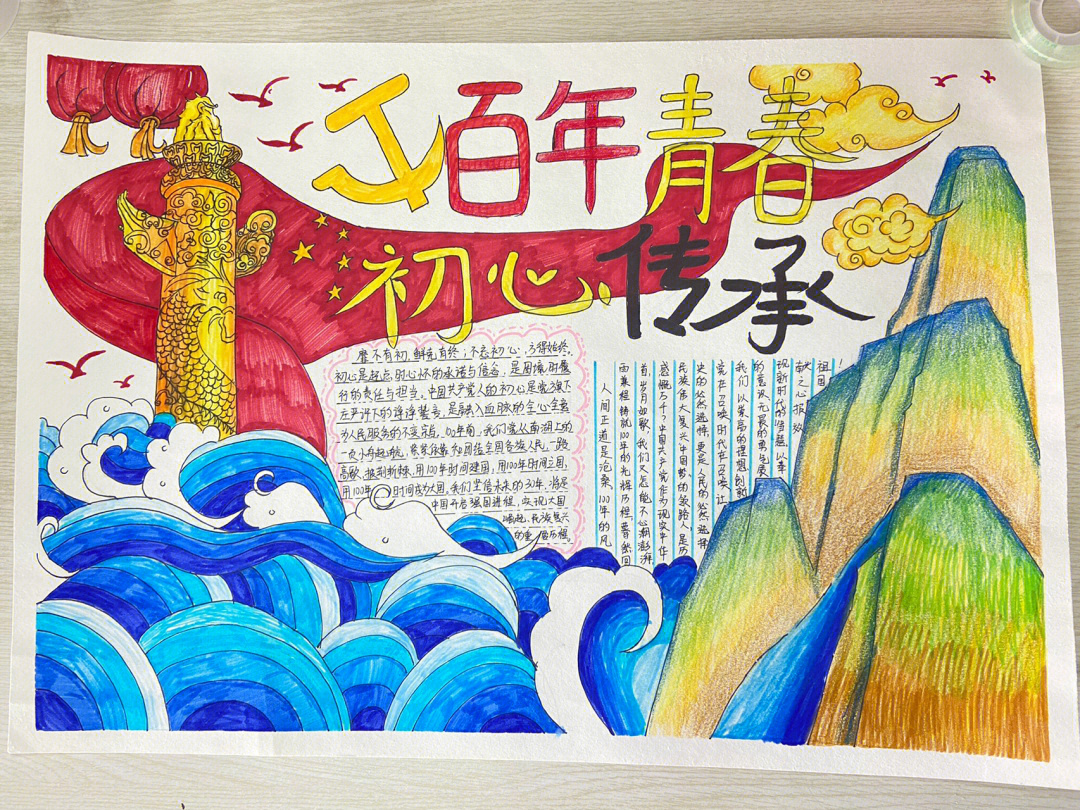 百年青春
初心传承
靡不有初,鲜克有终;不忘初心,方得始终。
初心是起点时心怀的承诺与信念,是困境时履
行的责任与担当。中国共产党人的初心是党旗下
庄严许下的铮铮誓言,是融入血脉的全心全意
为人民服务的不变宗旨。100年前,我们党从南湖上的
一页小舟起航,紧紧依靠和团结全国各族人民,一路
高歌,披荆斩棘。用100年时间建国,用100年时间立国,
用100年时间成为大国。我们坚信未来的30年,将是
中国开启强国进程,实现大国
崛起、民族复兴
的重要历程。
人间正道是沧桑,100年的风
雨兼程铸就100年的光辉历程。蓦然回
首,岁月如歌,我们又怎能不心潮澎湃,
感慨万千?中国共产党作为现实中华
民族伟大复兴中国梦的领路人,是历
史的必然选择,更是人民的必然选择。
党在召唤,时代在召唤,让
我们以崇高的理想,创新
的意识,无畏的勇气,展
现新时代的信念,以奉
献之心报效
祖国!